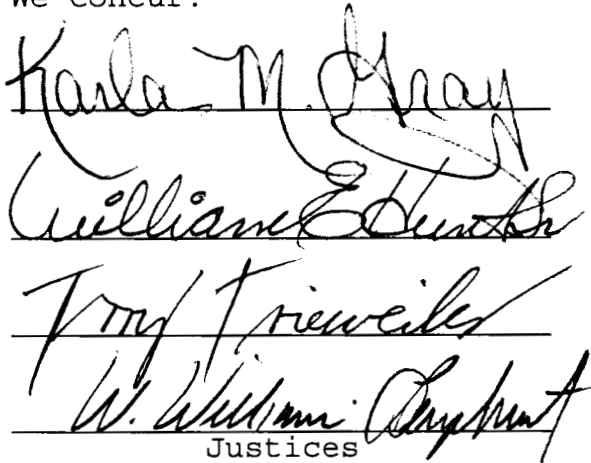 We Concur:
Karla M. Gray
William E Hunt Sr
Terry Trieweiler
W. William Leaphart
Justices